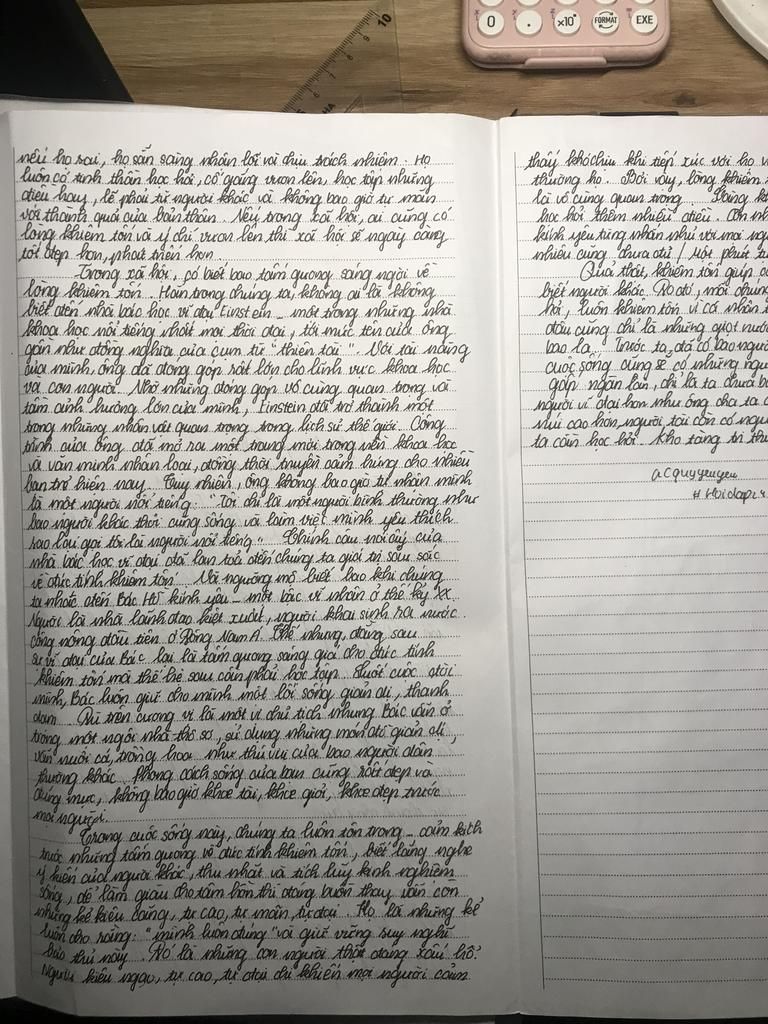 0 . ×10ˣ FORMAT EXE
10
nếu họ sai, họ sẵn sàng nhận lỗi và chịu trách nhiệm. Họ
luôn có tinh thần học hỏi, cố gắng vươn lên, học tập những
điều hay, lẽ phải từ người khác và không bao giờ tự mãn
với thành quả của bản thân. Nếu trong xã hội, ai cũng có
lòng khiêm tốn và ý chí vươn lên thì xã hội sẽ ngày càng
tốt đẹp hơn, phát triển hơn.
Trong xã hội, có biết bao tấm gương sáng ngời về
lòng khiêm tốn. Hẳn trong chúng ta, không ai là không
biết đến nhà bác học vĩ đại Einstein - một trong những nhà
khoa học nổi tiếng nhất mọi thời đại, tới mức tên của ông
gần như đồng nghĩa của cụm từ "thiên tài". Với tài năng
của mình, ông đã đóng góp rất lớn cho lĩnh vực khoa học
và con người. Nhờ những đóng góp vô cùng quan trọng và
tầm ảnh hưởng lớn của mình, Einstein đã trở thành một
trong những nhân vật quan trọng trong lịch sử thế giới. Công
trình của ông đã mở ra một trang mới trong nền khoa học
và văn minh nhân loại, đồng thời truyền cảm hứng cho nhiều
bạn trẻ hiện nay. Tuy nhiên, ông không bao giờ tự nhận mình
là một người nổi tiếng: "Tôi chỉ là một người bình thường như
bao người khác thôi cũng sống và làm việc mình yêu thích
sao lại gọi tôi là người nổi tiếng". Chính câu nói ấy của
nhà bác học vĩ đại đã lan toả đến chúng ta giá trị sâu sắc
về đức tính khiêm tốn. Và ngưỡng mộ biết bao khi chúng
ta nhắc đến Bác Hồ kính yêu - một bậc vĩ nhân ở thế kỷ XX.
Người là nhà lãnh đạo kiệt xuất, người khai sinh ra nước
công nông đầu tiên ở Đông Nam Á. Thế nhưng, đằng sau
sự vĩ đại của Bác lại là tấm gương sáng giá cho đức tính
khiêm tốn mà thế hệ sau cần phải học tập. Suốt cuộc đời
mình, Bác luôn giữ cho mình một lối sống giản dị, thanh
đạm. Dù trên cương vị là một vị chủ tịch nhưng Bác vẫn ở
trong một ngôi nhà thô sơ, sử dụng những món đồ giản dị,
vẫn nuôi cá, trồng hoa như thú vui của bao người dân
thường khác. Phong cách sống của bạn cũng rất đẹp và
đúng mực, không bao giờ khoe tài, khoe giỏi, khoe đẹp trước
mọi người.
Trong cuộc sống này, chúng ta luôn tôn trọng - cảm kích
trước những tấm gương về đức tính khiêm tốn, biết lắng nghe
ý kiến của người khác, thu nhặt và tích lũy kinh nghiệm
sống, để làm giàu cho tâm hồn thì đáng buồn thay vẫn còn
những kẻ kiêu căng, tự cao, tự mãn, tự đại. Họ là những kẻ
luôn cho rằng: "mình luôn đúng" và giữ vững suy nghĩ
bảo thủ này. Đó là những con người thật đáng xấu hổ.
Người kiêu ngạo, tự cao, tự đại chỉ khiến mọi người cảm
thấy khó chịu khi tiếp xúc với họ và
thường họ. Bởi vậy, lòng khiêm
là vô cùng quan trọng.
học hỏi thêm nhiều điều. Còn nh
kính yêu từng nhắn nhủ với mọi ng
nhiêu cũng chưa đủ / Một phút tự
Quả thật, khiêm tốn giúp c
biết người khác. Do đó, mỗi chúng
hỏi, luôn khiêm tốn vì cá nhân t
đâu cũng chỉ là những giọt nước
bao la. Trước ta, đã có bao người
cuộc sống cũng sẽ có những ngư
gấp ngàn lần, chỉ là ta chưa b
người vĩ đại hơn như ông cha ta c
núi cao hơn, người tài còn có ngư
ta cần học hỏi. Kho tàng tri thứ
acquyyeuyeu
# Hoidap24